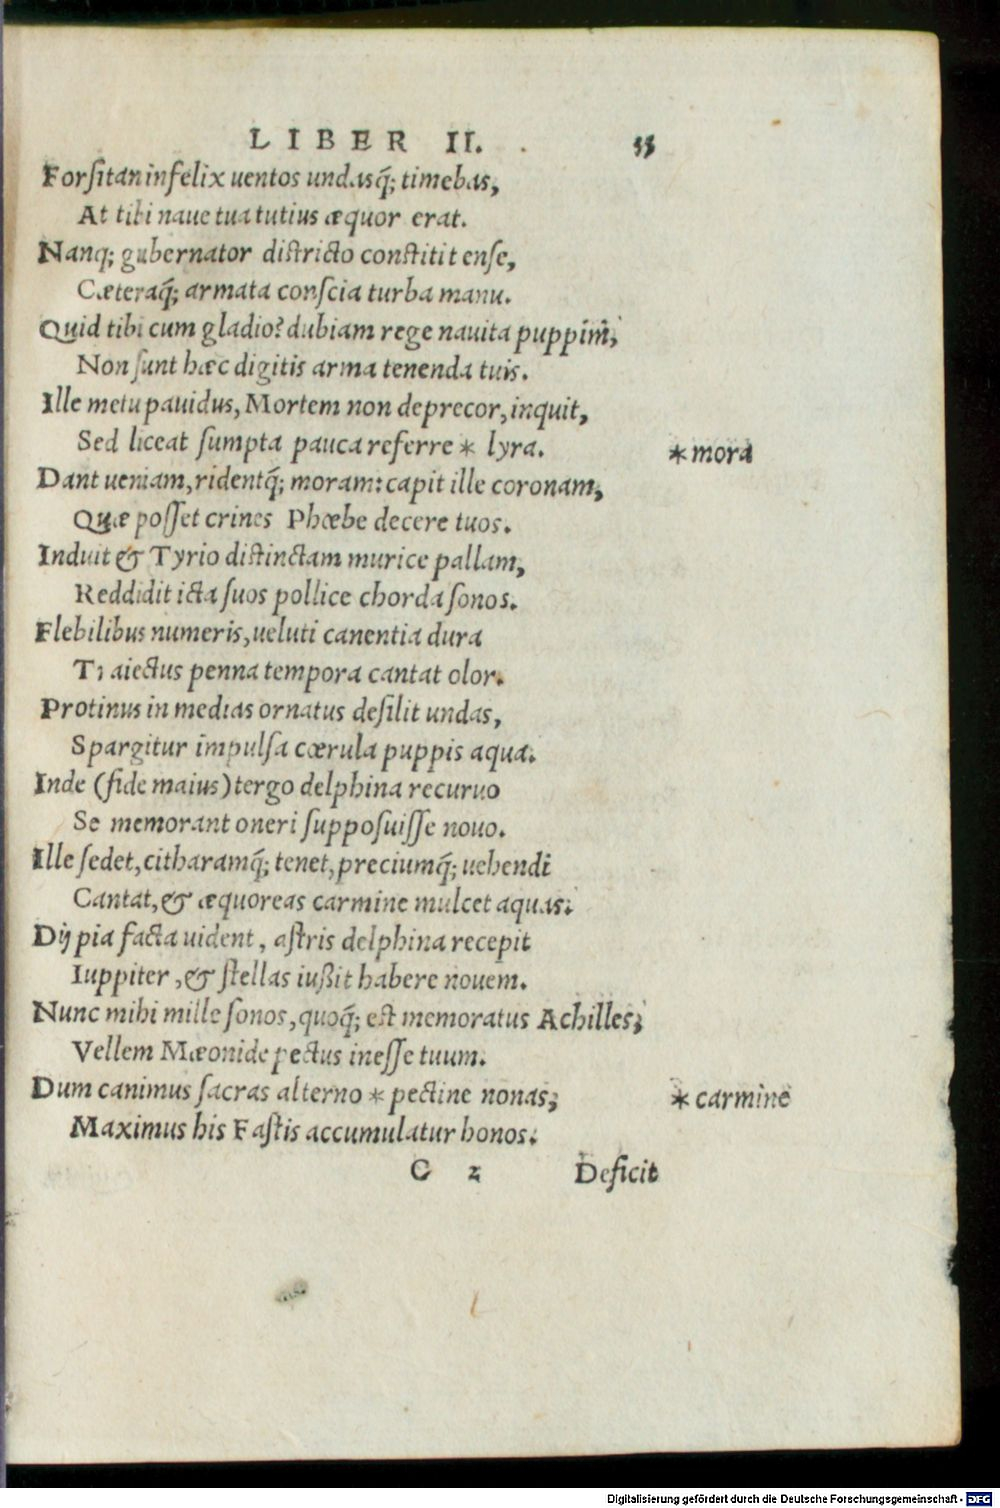 LIBER II. 35
Forſitan infelix uentos undasq́; timebas,
At tibi naue tua tutius æquor erat.
Nanq; gubernator diſtricto conſtitit enſe,
Cæteraq́; armata conſcia turba manu.
Quid tibi cum gladio? dubiam rege nauita puppim,
Non ſunt hæc digitis arma tenenda tuis.
Ille metu pauidus, Mortem non deprecor, inquit,
Sed liceat ſumpta pauca referre * lyra. * mora
Dant ueniam, ridentq́; moram: capit ille coronam,
Quæ poſſet crines Phœbe decere tuos.
Induit & Tyrio diſtinctam murice pallam,
Reddidit icta ſuos pollice chorda ſonos.
Flebilibus numeris, ueluti canentia dura
Traiectus penna tempora cantat olor.
Protinus in medias ornatus deſilit undas,
Spargitur impulſa cœrula puppis aqua.
Inde (fide maius) tergo delphina recuruo
Se memorant oneri ſuppoſuiſſe nouo.
Ille ſedet, citharamq́; tenet, preciumq́; uehendi
Cantat, & æquoreas carmine mulcet aquas.
Dij pia facta uident, aſtris delphina recepit
Iuppiter, & ſtellas iußit habere nouem.
Nunc mihi mille ſonos, quoq́; eſt memoratus Achilles,
Vellem Mæonide pectus ineſſe tuum.
Dum canimus ſacras alterno * pectine nonas, * carmine
Maximus his Faſtis accumulatur honos.
C 2 Deficit
Digitalisierung gefördert durch die Deutsche Forschungsgemeinschaft - DFG